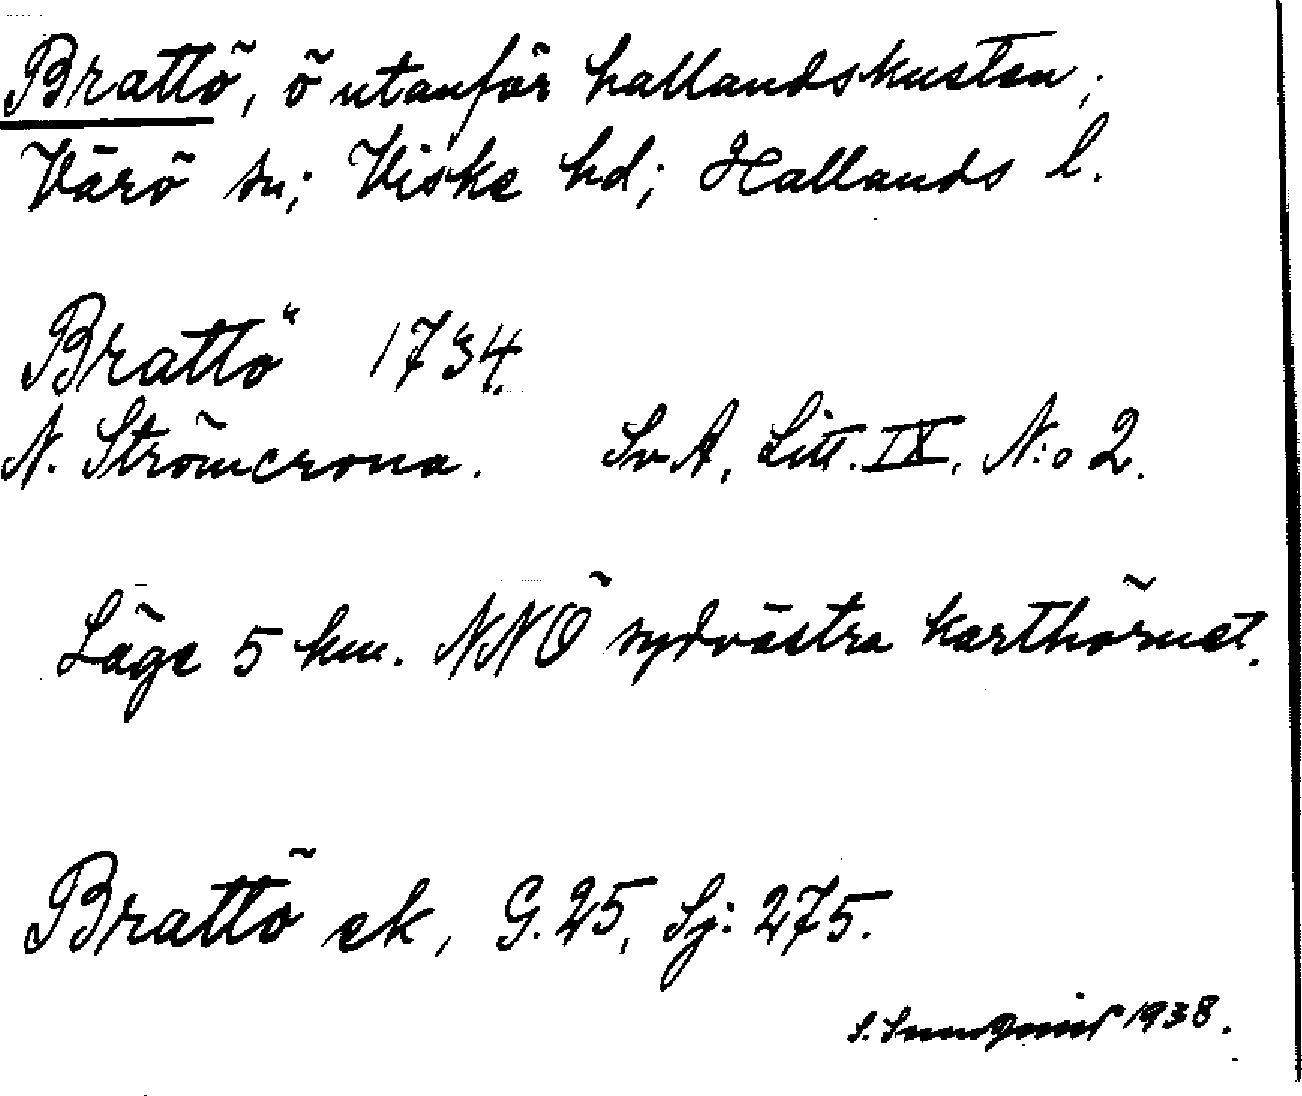 Brattö, ö utanför hallandskusten;
Värö sn; Viske hd; Hallands l.
Brattö 1734.
N. Strömcrona. SvA, Litt. IX, N:o 2.
Läge 5 km. NNÖ sydvästra karthörnet.
Brattö ek, G. 25, Sj: 275.
S. Sundqvist 1938.